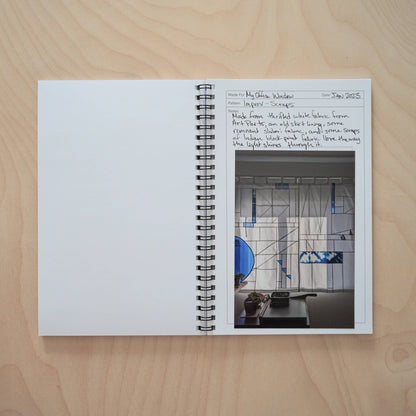 Made For My Office Window Date Jan 2023
Pattern Improv - Scraps
Notes
Made from thrifted white fabric from
Art Parts, an old skirt lining, some
remnant shibori fabric, and some scraps
of Indian block-print fabric. Love the way
the light shines through it.